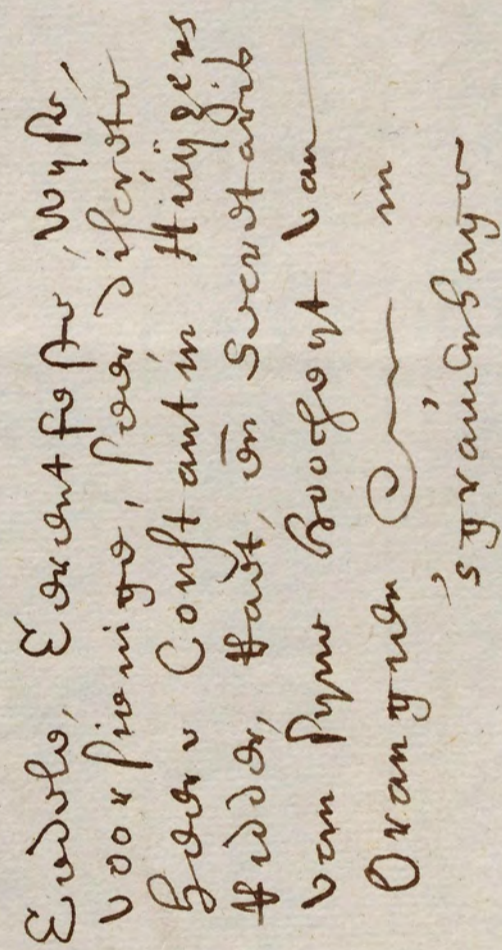 Eedele, Erentfeste, Wyse,
voorsienige, seer discrete
Heere Constantin Huijgens
Ridder, Radt, en̄ Secretaris
van syne Hoogheyt van
Orangien in
s'graůenhage